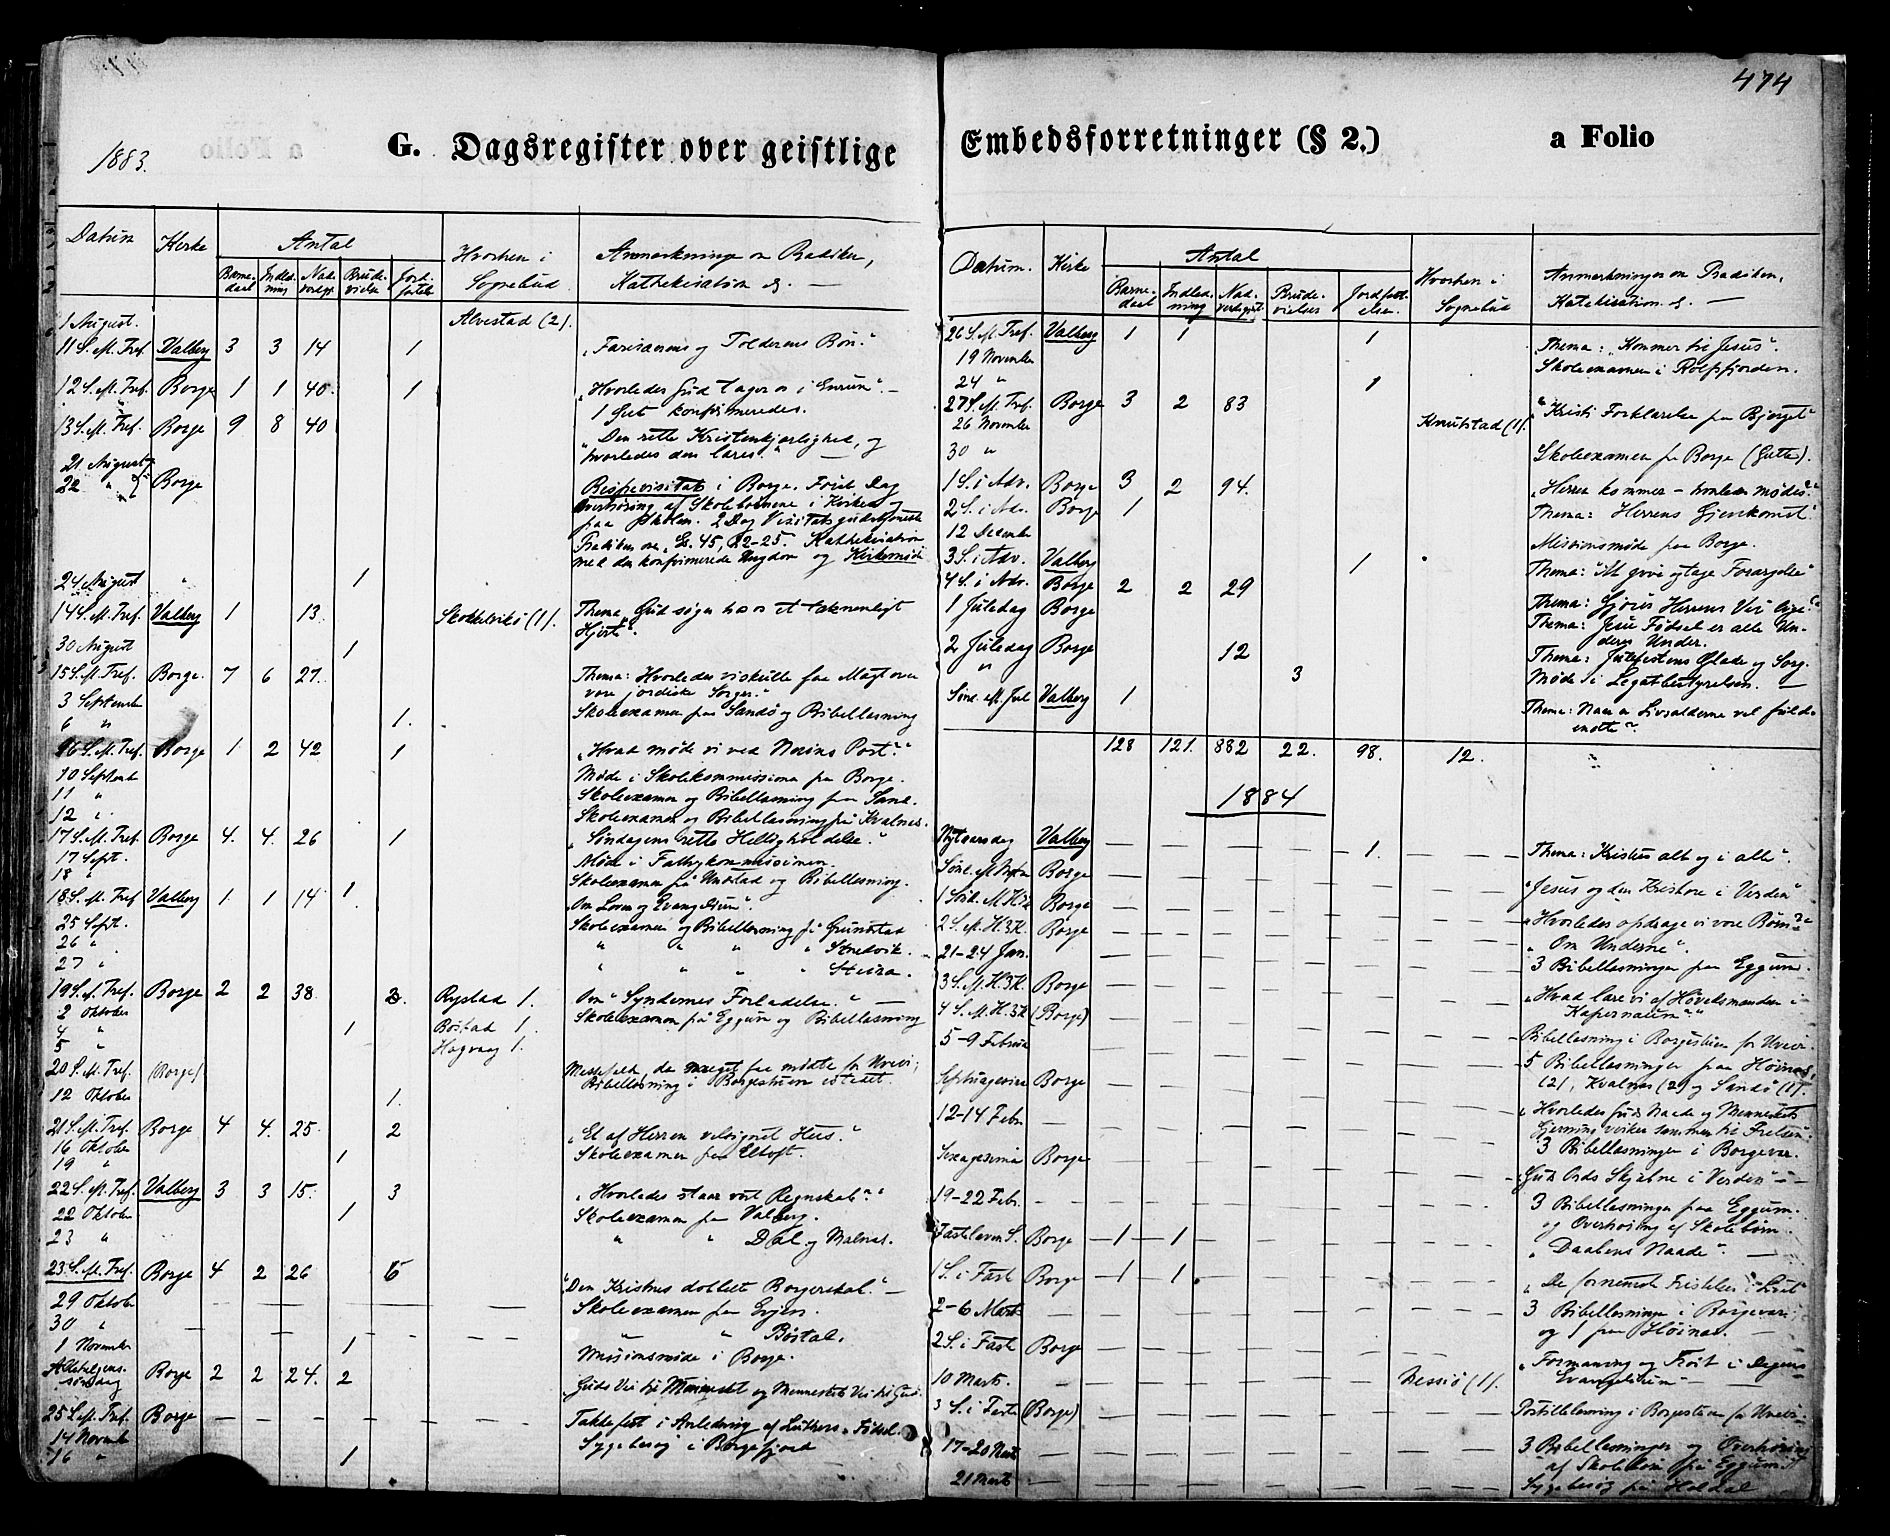 474
1883.
G. Dagsregister over geistlige
Embedsforretninger (§ 2.)
a Folio
Datum Kirke Antal
Barne-daab Indled-ning Nad-verdgj. Brude-vielse Jord-fæstelse
Hvorhen i Sognebud
Anmærkninger om Prædiken, Kathekisation &c. —
1 August. Alvestad (2).
11 S. M. Tref. Valberg 3 3 14 1 "Farisæerens og Tolderens Bøn."
12 S. M. Tref. Borge 1 1 40 1 "Hvorledes Gud tager os i Enrum" —
1 Gut konfirmeredes.
13 S. M. Tref. Borge 9 8 40 "Den rette Kristenkjærlighed, og
hvorledes den læres." —
21 August
22 " Borge Bispevisitats i Borge. Første Dag
Overhøring af Skolebørnene i Kirken og
paa Skolen. 2 Dag Visitatsgudstjeneste
Prædiken over Es. 45, 22-25. Kathekisation
med den konfirmerede Ungdom og Kirkemøde
24 August " 1
14 S. M. Tref. Valberg 1 13 (1). Thema, Gud søger hos os et taknemligt
Hjerte".
30 August 1
15 S. M. Tref. Borge. 7 6 27. Thema: Hvorledes vi skulle faa Magt over
vore jordiske Sorger."
3 September Skoleexamen paa Sandø og Bibellæsning
6 " 1.
16 S. M. Tref. Borge 1 2 42 1 "Hvad møde vi ved Nains Port?"
10 Septembr Møde i Skolekommissionen paa Borge.
11 " Skoleexamen og Bibellæsning paa Sand.
12 " Skoleexamen og Bibellæsning på Kvalnes.
17 S. M. Tref. Borge 4. 4. 26 1 "Søndagens rette Helligholdelse."
17 Sept. Møde i Fattigkommissionen.
18 " Skoleexamen på Unstad og Bibellæsning.
18 S. M. Tref Valberg 1 1 14 1 "Om Loven og Evangelium".
25 Sept. Skoleexamen og Bibellæsning på Grunstad
26 " " " " "
27 " " " " " Steira.
19 S. M. Tref. Borge 2 2 38 Rystad 1. Om "Syndernes Forladelse." —
2 Oktober Bøstad 1. Skoleexamen på Eggum og Bibellæsning
4 " 1 Hagvaag 1.
5 "
20 S. M. Tref. (Borge) Messefald, da meget faa mødte for Uveir;
Bibellæsning i Borgestuen istedet.
12 Oktober 1.
21 S. M. Tref. Borge 4 4. 25 2 "Et af Herren velsignet Hus."
16 Oktober Skoleexamen paa Eltoft.
19 " 1
22 S. M. Tref. Valberg 3 3 15. 3 "Hvorledes staar vort Regnskab?"
22 Oktober 1 Skoleexamen paa Valberg.
23 " " " Dal og Malnes.
23 S. M. Tref. Borge 4 2 26 "Den Kristnes dobbelt Borgerskab." —
29 Oktober Skoleexamen paa
30 " " " Bøstad.
1 November 1 Missionsmøde i Borge.
Allehelgens-søndag Borge 2 2 24. 2 Guds Vei til Mennesket og Menneskets Vei til Gud.
25 S. M. Tref. Borge Takkefest i Anledning af Luthers Fødsel
14 November Sygebesøg i Borgefjord
16 " 1
Datum. Kirke Antal
Barne-daab Indled-ning Nad-verdgjst. Brude-vielser Jordfæst-elser.
Hvorhen i Sognebud
Anmærkninger om Prædiken, Katekisation &. —
26 S. M. Tref. Valberg 1 1 1 "Thema: "Kommer til Jesus".
19 November Skoleexamen i Rolfsfjorden.
24 " 1
27 S. M. Tref. Borge 3 2 83 "Kristi Forklarelse paa Bjerget"
26 November Knutstad (1).
30 " Skoleexamen paa Borge (Gutter).
1 S. i Adv. Borge 3 2 94. "Herren kommer —
2 S. i Adv. Borge 1 Thema: Herrens Gjenkomst.
12 December Missionsmøde paa Borge.
3 S. i Adv. Valberg 1 Thema: "At give og tage Forargelse"
4 S. i Adv. Borge 2 2 29 Thema: Gjører Herrens Vei lige."
1 Juledag Borge Thema: Jesu Fødsel er alle Un-
ders Under.
2 Juledag Borge 12 Thema: Julefestens Glæde og Sorg.
" 3 Møde i Legatbestyrelsen. —
Sønd. M. Jul Valberg 1 Thema: Naar er Livsalderne vel fuld-
endte?
128 121. 882 22. 98. 12.
1884
Nytaarsdag Valberg 1. Thema: Kristus alt og i alle".
Sønd. M. Nytar Borge "Jesus og den Kristne i Verden"
1 Sønd. M. H3K Borge "Hvorledes opdrage vi vore Børn?"
2 S. M. H.3K. Borge "Om Underne".
21-24 Jan. 3 Bibellæsninger paa Eggum.
3 S. M. H.3K. Borge "Hvad lære vi af Høvedsmanden i
Kapernaum?"
4 S. M. H.3K (Borge) Bibellæsning i Borgestuen for Uveir.
5-9 Februar 5 Bibellæsninger paa Høines
(2), Kvalnes (2) og Sandø (1).
Septuagesima Borge "Hvorledes Guds Naade og Menneskets
Gjerning virker sammen til Frelsen".
12-14 Febr. 3 Bibellæsninger i Borgevær.
Sexagesima Borge "Guds Ords Skjæbne i Verden" —
19-22 Febr. 3 Bibellæsninger paa Eggum.
og Overhøring af Skolebørn.
Fastelavns S. Borge 1 1 "Daabens Naade". —
1 S. i Fast Borge 1 1 "De fornemste Fristelser
2-6 Marts 3 Bibellæsninger i Borgevær;
og 1 paa Høines. —
2 S. i Fast Borge "Formaning og Trøst i Dagens
Evangelium" —
10 Marts. (1).
3 S. i Faste (Borge) Postillelæsning i Borgestuen for Uveir.
17-20 Marts 3 Bibellæsninger og Overhøring
af Skolebørn på Eggum
21 Marts Sygebesøg på